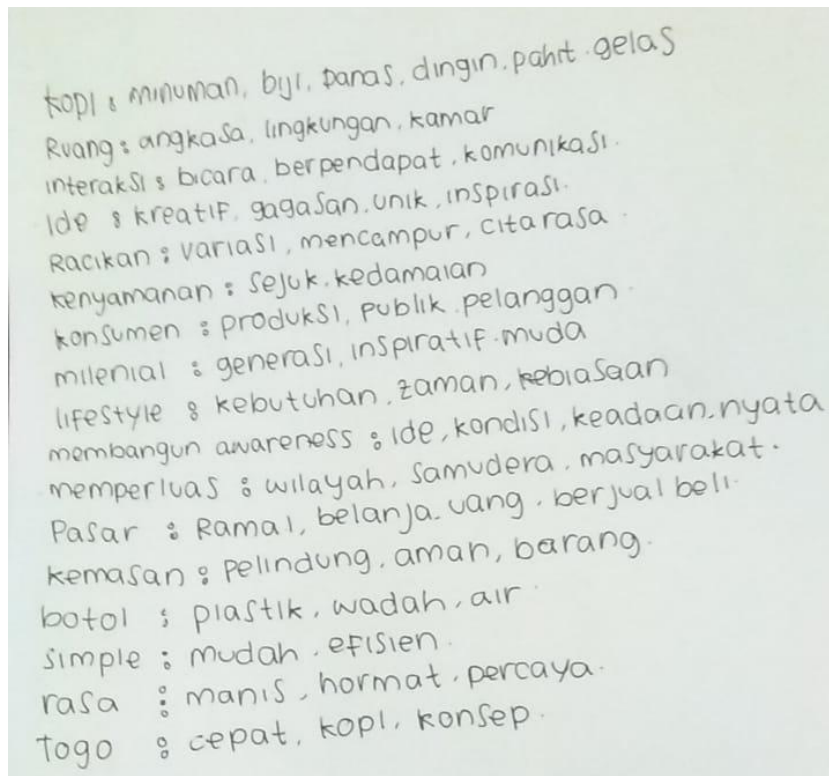 kopi : minuman, biji, panas, dingin, pahit. gelas
Ruang : angkasa, lingkungan, kamar
interaksi : bicara, berpendapat, komunikasi.
Ide : kreatif, gagasan, unik, inspirasi.
Racikan : variasi, mencampur, citarasa.
kenyamanan : sejuk, kedamaian
konsumen : produksi, publik, pelanggan.
milenial : generasi, inspiratif, muda
lifestyle : kebutuhan, zaman, kebiasaan
membangun awareness : ide, kondisi, keadaan, nyata
memperluas : wilayah, samudera, masyarakat.
Pasar : Ramai, belanja, uang, berjual beli.
kemasan : pelindung, aman, barang.
botol : plastik, wadah, air.
simple : mudah, efisien.
rasa : manis, hormat, percaya.
Togo : cepat, kopi, konsep.